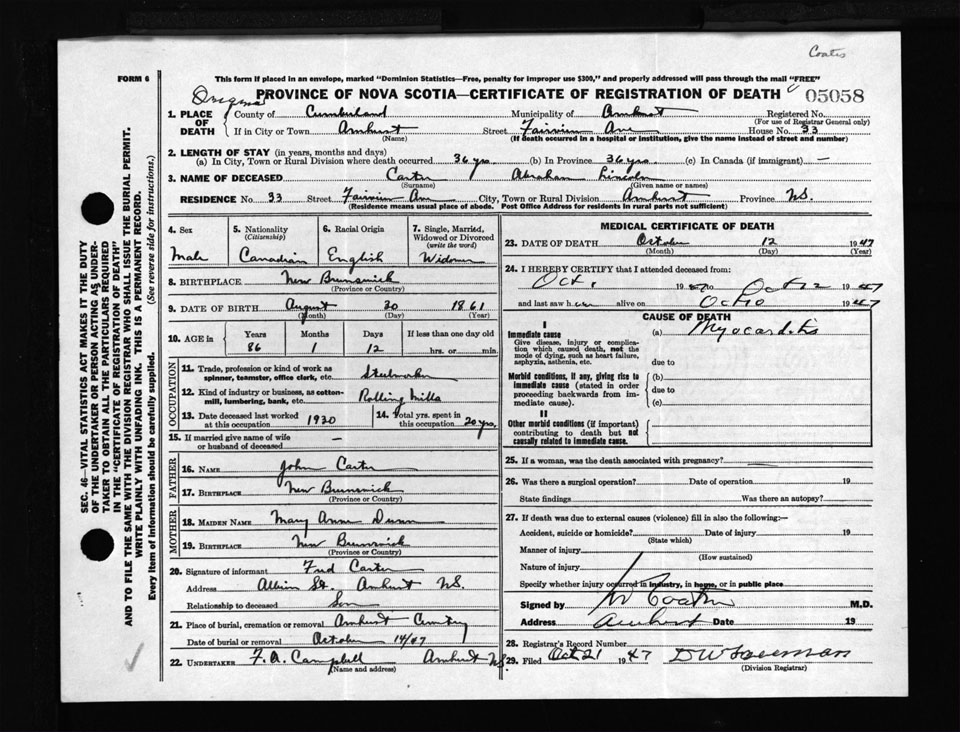 Coates
FORM 6
This form if placed in an envelope, marked "Dominion Statistics—Free, penalty for improper use $300," and properly addressed will pass through the mail "FREE"
Original
PROVINCE OF NOVA SCOTIA—CERTIFICATE OF REGISTRATION OF DEATH
05058
1. PLACE OF DEATH
County of Cumberland Municipality of Amherst Registered No.
(For use of Registrar General only)
If in City or Town Amherst Street Fairview Ave House No. 33
(Name) (If death occurred in a hospital or institution, give the name instead of street and number)
2. LENGTH OF STAY (in years, months and days)
(a) In City, Town or Rural Division where death occurred 36 yrs. (b) In Province 36 yrs. (c) In Canada (if immigrant) —
3. NAME OF DECEASED Carter Abraham Lincoln
(Surname) (Given name or names)
RESIDENCE No. 33 Street Fairview Ave City, Town or Rural Division Amherst Province NS.
(Residence means usual place of abode. Post Office Address for residents in rural parts not sufficient)
4. Sex
Male
5. Nationality (Citizenship)
Canadian
6. Racial Origin
English
7. Single, Married, Widowed or Divorced (write the word)
Widower
8. BIRTHPLACE New Brunswick
(Province or Country)
9. DATE OF BIRTH August 30 1861
(Month) (Day) (Year)
10. AGE in Years Months Days If less than one day old
86 1 12 hrs. or min.
OCCUPATION
11. Trade, profession or kind of work as spinner, teamster, office clerk, etc. Steelworker
12. Kind of industry or business, as cotton-mill, lumbering, bank, etc. Rolling Mills
13. Date deceased last worked at this occupation 1930
14. Total yrs. spent in this occupation 20 yrs.
15. If married give name of wife or husband of deceased —
FATHER
16. NAME John Carter
17. BIRTHPLACE New Brunswick
(Province or Country)
MOTHER
18. MAIDEN NAME Mary Anne Dunn
19. BIRTHPLACE New Brunswick
(Province or Country)
20. Signature of informant Fred Carter
Address Albion St. Amherst NS.
Relationship to deceased Son
21. Place of burial, cremation or removal Amherst Cemetery
Date of burial or removal October 14/47
22. UNDERTAKER F. A. Campbell Amherst NS.
(Name and address)
MEDICAL CERTIFICATE OF DEATH
23. DATE OF DEATH October 12 1947
(Month) (Day) (Year)
24. I HEREBY CERTIFY that I attended deceased from:
Oct. 1947 to Oct 12 1947
and last saw h im alive on Oct 10 1947
CAUSE OF DEATH
I
Immediate cause
Give disease, injury or complication which caused death, not the mode of dying, such as heart failure, asphyxia, asthenia, etc.
(a) Myocarditis
due to
Morbid conditions, if any, giving rise to immediate cause (stated in order proceeding backwards from immediate cause).
(b)
due to
(c)
II
Other morbid conditions (if important) contributing to death but not causally related to immediate cause.
25. If a woman, was the death associated with pregnancy?
26. Was there a surgical operation? Date of operation 19
State findings Was there an autopsy?
27. If death was due to external causes (violence) fill in also the following:—
Accident, suicide or homicide? Date of injury 19
(State which)
Manner of injury
(How sustained)
Nature of injury
Specify whether injury occurred in industry, in home, or in public place
Signed by Coates M.D.
Address Amherst Date 19
28. Registrar's Record Number
29. Filed Oct 21 1947
(Division Registrar)
SEC. 46—VITAL STATISTICS ACT MAKES IT THE DUTY
OF THE UNDERTAKER OR PERSON ACTING AS UNDER-
TAKER TO OBTAIN ALL THE PARTICULARS REQUIRED
IN THE "CERTIFICATE OF REGISTRATION OF DEATH"
AND TO FILE THE SAME WITH THE DIVISION REGISTRAR WHO SHALL ISSUE THE BURIAL PERMIT.
WRITE PLAINLY WITH UNFADING INK. THIS IS A PERMANENT RECORD.
Every item of information should be carefully supplied. (See reverse side for instructions.)